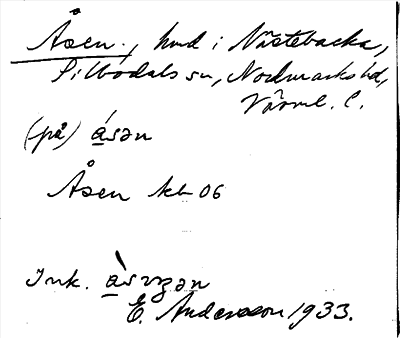 Åsen., hmd i Nästebacka,
Silbodals sn, Nordmarks hd,
Värml. l.
(på) åsən
Åsen kb 06
Ink.
E. Andersson 1933.